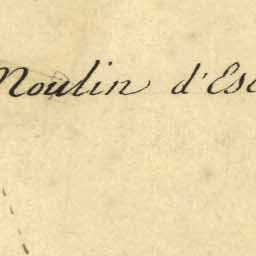 Moulin d'Esc